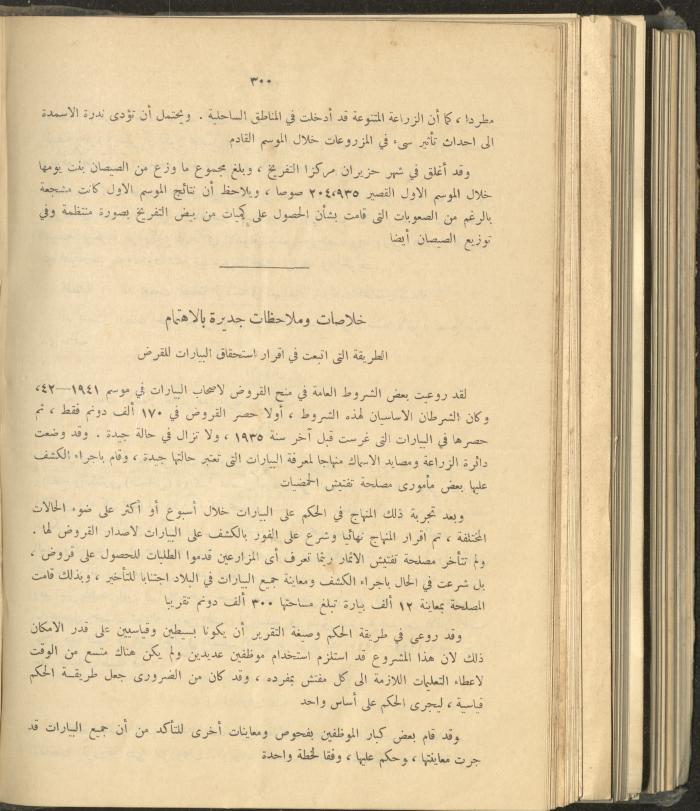 ٣٠٠
مطردا ، كما أن الزراعة المتنوعة قد أدخلت في المناطق الساحلية . ويحتمل أن تؤدى ندرة الاسمدة
الى احداث تأثير سىء في المزروعات خلال الموسم القادم
وقد أغلق في شهر حزيران مركزا التفريخ ، وبلغ مجموع ما وزع من الصيصان بنت يومها
خلال الموسم الاول القصير ٢٠٤،٩٣٥ صوصا ، ويلاحظ أن نتائج الموسم الاول كانت مشجعة
بالرغم من الصعوبات التى قامت بشأن الحصول على كميات من بيض التفريخ بصورة منتظمة وفي
توزيع الصيصان أيضا
خلاصات وملاحظات جديرة بالاهتمام
الطريقة التى اتبعت في اقرار استحقاق البيارات للقرض
لقد روعيت بعض الشروط العامة في منح القروض لاصحاب البيارات في موسم ١٩٤١—٤٢،
وكان الشرطان الاساسيان لهذه الشروط ، أولا حصر القروض في ١٧٠ ألف دونم فقط ، ثم
حصرها في البيارات التى غرست قبل آخر سنة ١٩٣٥ ، ولا تزال في حالة جيدة . وقد وضعت
دائرة الزراعة ومصايد الاسماك منهاجا لمعرفة البيارات التى تعتبر حالتها جيدة ، وقام باجراء الكشف
عليها بعض مأمورى مصلحة تفتيش الحمضيات
وبعد تجربة ذلك المنهاج في الحكم على البيارات خلال أسبوع أو أكثر على ضوء الحالات
المختلفة ، تم اقرار المنهاج نهائيا وشرع على الفور بالكشف على البيارات لاصدار القروض لها .
ولم تتأخر مصلحة تفتيش الاثمار ريثما تعرف أى المزارعين قدموا الطلبات للحصول على قروض ،
بل شرعت في الحال باجراء الكشف ومعاينة جميع البيارات في البلاد اجتنابا للتأخير ، وبذلك قامت
المصلحة بمعاينة ١٢ ألف بيارة تبلغ مساحتها ٣٠٠ ألف دونم تقريبا
وقد روعى في طريقة الحكم وصيغة التقرير أن يكونا بسيطين وقياسيين على قدر الامكان
ذلك لان هذا المشروع قد استلزم استخدام موظفين عديدين ولم يكن هناك متسع من الوقت
لاعطاء التعليمات اللازمة الى كل مفتش بمفرده ، وقد كان من الضرورى جعل طريقة الحكم
قياسية ، ليجرى الحكم على أساس واحد
وقد قام بعض كبار الموظفين بفحوص ومعاينات أخرى للتأكد من أن جميع البيارات قد
جرت معاينتها ، وحكم عليها ، وفقا لخطة واحدة